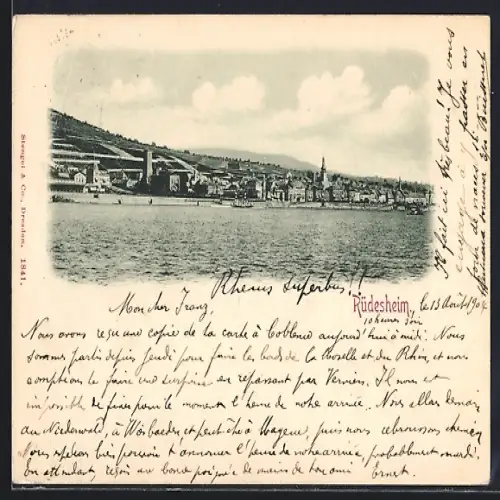 Stengel & Co., Dresden. 1841.
Rhenus Superbus!!
Rüdesheim, le 13 Août 1904
10 heures soir
Mon cher Franz,
Nous avons reçu une copie de la carte à Coblence aujourd'hui à midi. Nous
sommes partis depuis jeudi pour faire les bords de la Moselle et du Rhin, et nous
comptions te faire une surprise en repassant par Verviers. Il nous est
impossible de fixer pour le moment l'heure de notre arrivée. Nous allons demain
au Niederwald, à Wiesbaden et peut-être à Mayence, puis nous rebroussons chemin
Nous espérons bien pouvoir t'annoncer l'heure de notre arrivée, probablement mardi.
En attendant, reçois une bonne poignée de mains de ton ami Ernest.
Il fait ici très beau! Je vous
engage à passer en